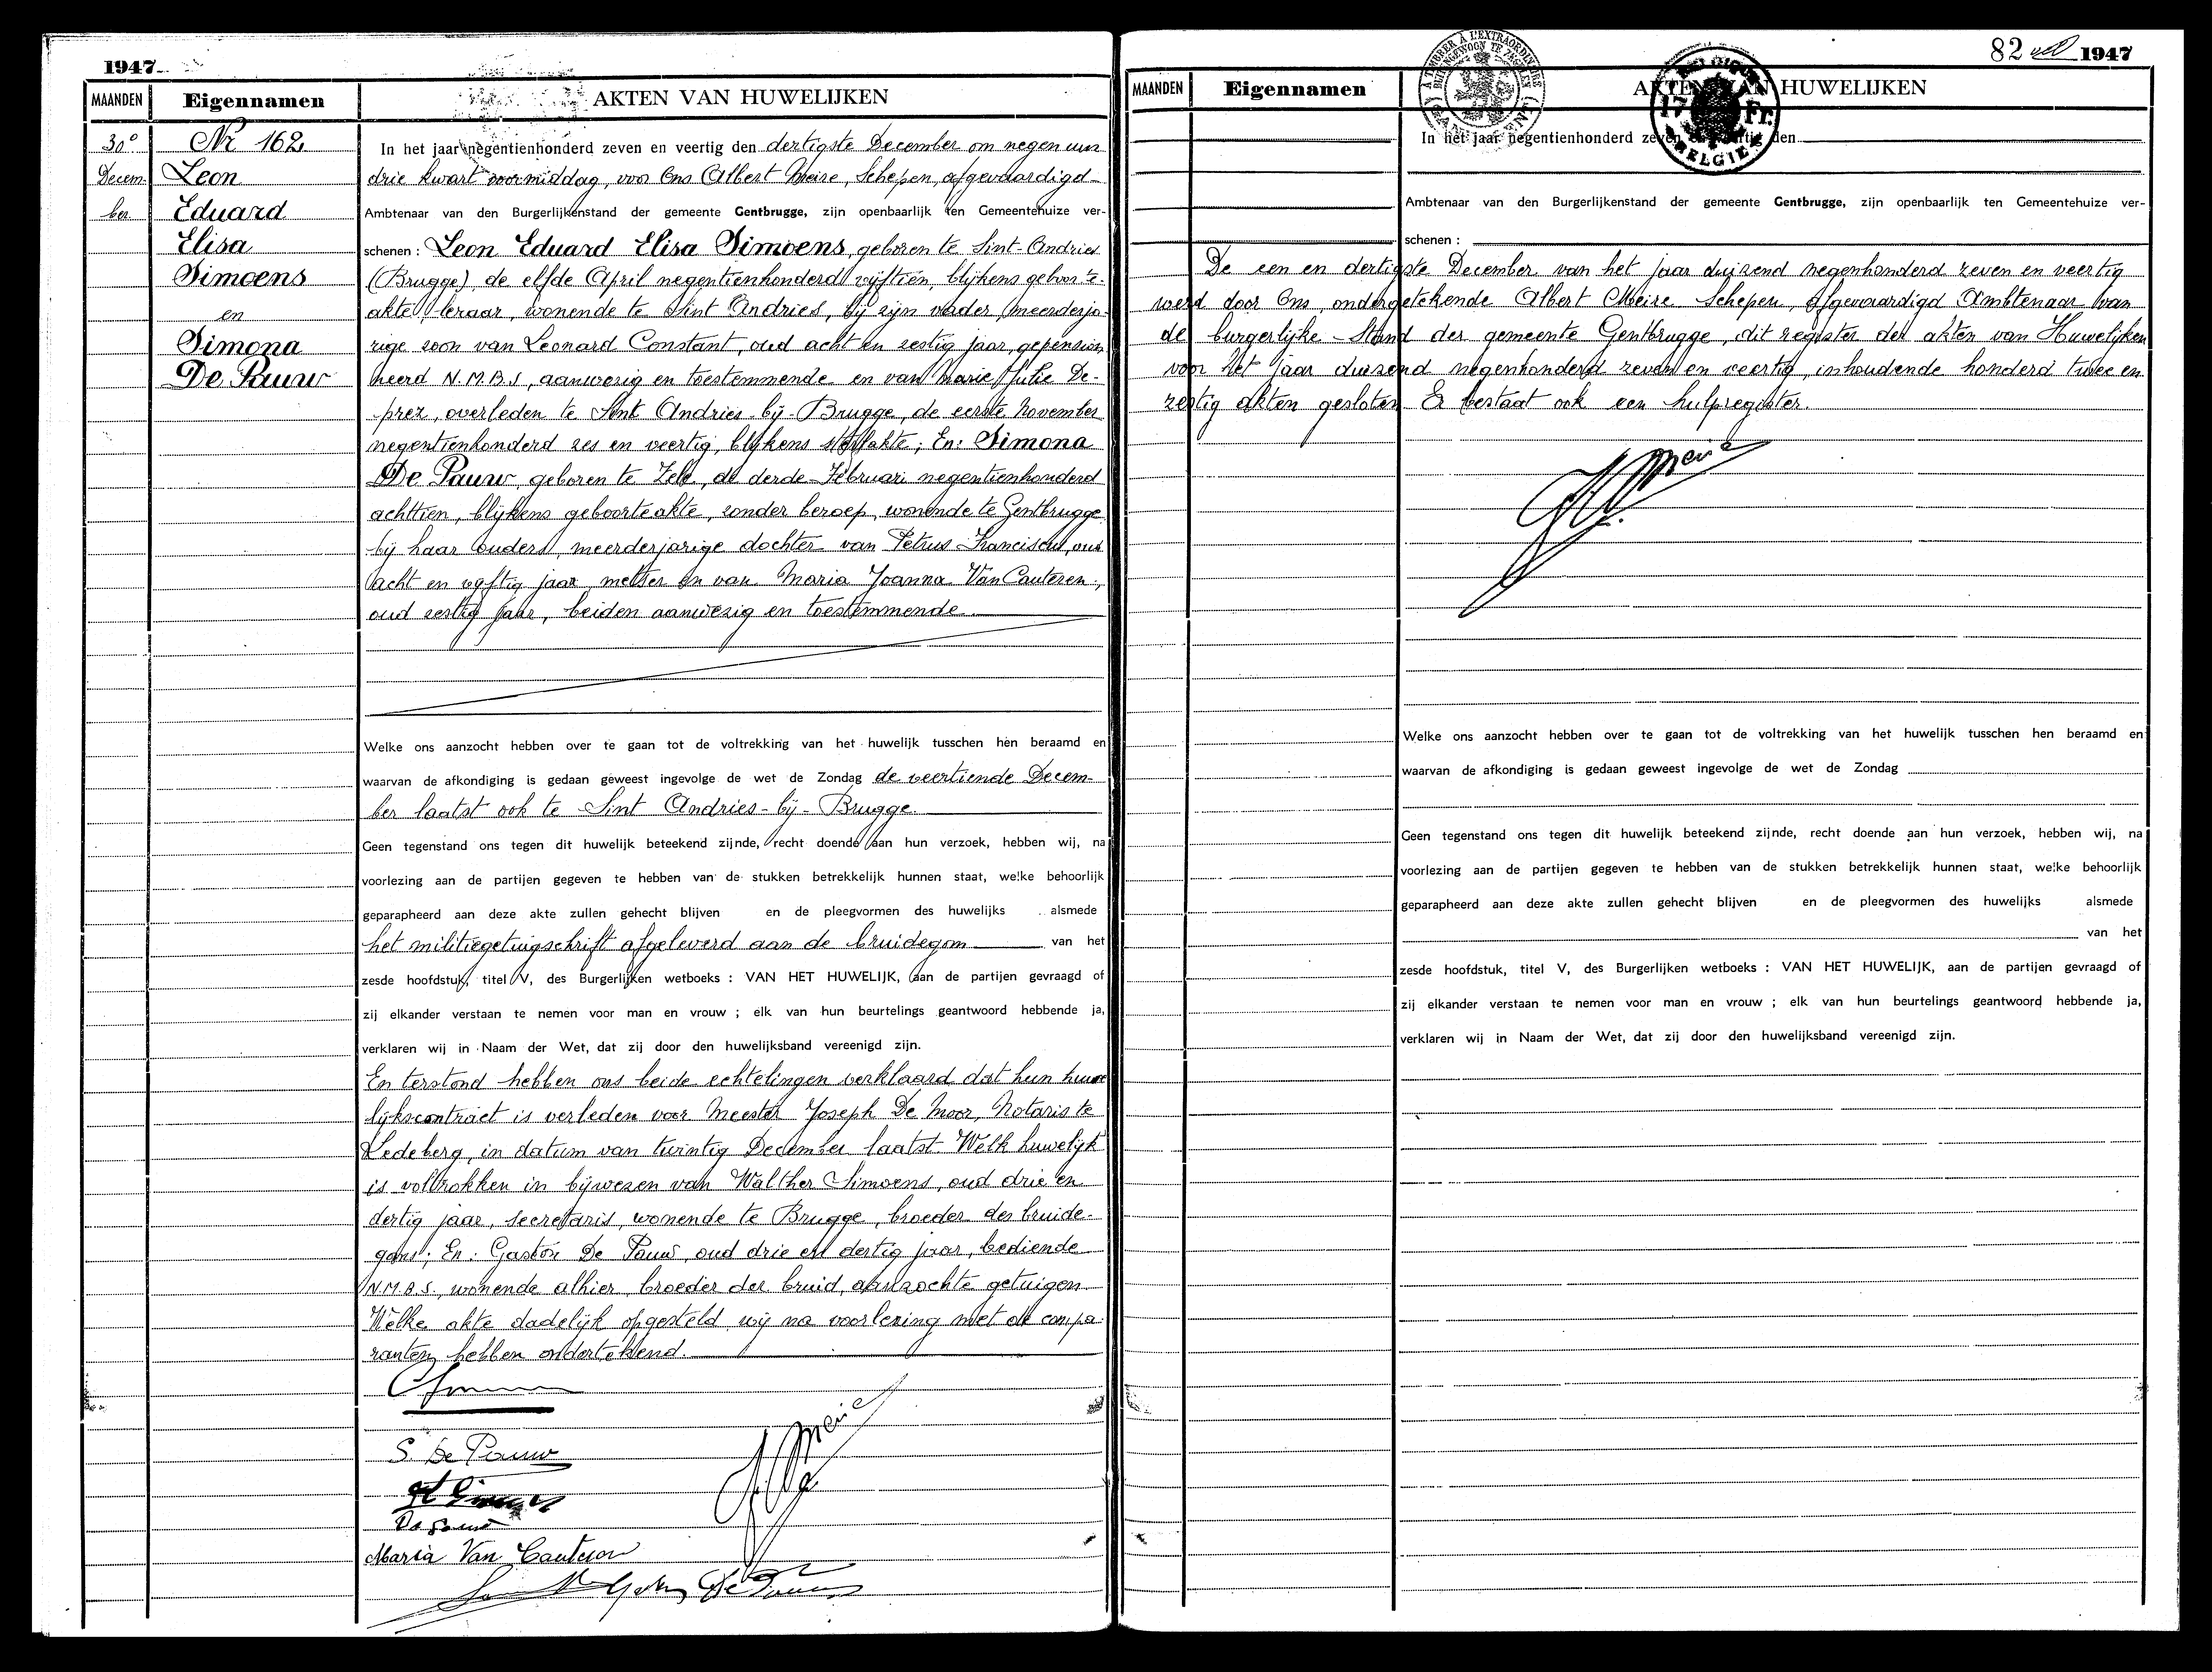 1947
MAANDEN Eigennamen AKTEN VAN HUWELIJKEN
30e
Decem-
ber
Nr 162
Leon
Eduard
Elisa
Simoens
en
Simona
De Pauw
In het jaar negentienhonderd zeven en veertig den dertigste December om negen uur
drie kwart voormiddag, voor Ons Albert Meire, Schepen, afgevaardigd
Ambtenaar van den Burgerlijkenstand der gemeente Gentbrugge, zijn openbaarlijk ten Gemeentehuize ver-
schenen : Leon Eduard Elisa Simoens, geboren te Sint-Andries
(Brugge), de elfde April negentienhonderd vijftien, blijkens geboorte-
akte, leraar, wonende te Sint Andries, bij zijn vader, meerderja-
rige zoon van Leonard Constant, oud acht en zestig jaar, gepension
neerd N.M.B.S, aanwezig en toestemmende en van Marie Julie De-
prez, overleden te Sint Andries-bij-Brugge, de eerste November
negentienhonderd zes en veertig, blijkens sterfakte; En: Simona
De Pauw, geboren te Zele, de derde Februari negentienhonderd
achttien, blijkens geboorteakte, zonder beroep, wonende te Gentbrugge
bij haar ouders, meerderjarige dochter van Petrus Franciscus, oud
acht en vijftig jaar, melser en van Maria Joanna Van Cauteren,
oud zestig jaar, beiden aanwezig en toestemmende
Welke ons aanzocht hebben over te gaan tot de voltrekking van het huwelijk tusschen hen beraamd en
waarvan de afkondiging is gedaan geweest ingevolge de wet de Zondag de veertiende Decem-
ber laatst ook te Sint Andries-bij-Brugge.
Geen tegenstand ons tegen dit huwelijk beteekend zijnde, recht doende aan hun verzoek, hebben wij, na
voorlezing aan de partijen gegeven te hebben van de stukken betrekkelijk hunnen staat, welke behoorlijk
geparapheerd aan deze akte zullen gehecht blijven en de pleegvormen des huwelijks alsmede
het militiegetuigschrift afgeleverd aan de bruidegom van het
zesde hoofdstuk, titel V, des Burgerlijken wetboeks : VAN HET HUWELIJK, aan de partijen gevraagd of
zij elkander verstaan te nemen voor man en vrouw ; elk van hun beurtelings geantwoord hebbende ja,
verklaren wij in Naam der Wet, dat zij door den huwelijksband vereenigd zijn.
En terstond hebben ons beide echtelingen verklaard dat hun huwe
lijkscontract is verleden voor Meester Joseph De Moor, Notaris te
Ledeberg, in datum van twintig December laatst. Welk huwelijk
is voltrokken in bijwezen van Walther Simoens, oud drie en
dertig jaar, secretaris, wonende te Brugge, broeder des bruide-
goms; En: Gaston De Pauw, oud drie en dertig jaar, bediende
N.M.B.S., wonende alhier, broeder der bruid, aanzochte getuigen
Welke akte dadelijk opgesteld, wij na voorlezing met de compa-
ranten hebben ondertekend.
S. De Pauw
A Meire
De Pauw
Maria Van Cauteren
De Pauw
82 1947
MAANDEN Eigennamen AKTEN VAN HUWELIJKEN
A TIMBRER A L'EXTRAORDINAIRE
GAND GENT
BELGIQUE
17 Fr.
BELGIE
In het jaar negentienhonderd zeven en veertig den
Ambtenaar van den Burgerlijkenstand der gemeente Gentbrugge, zijn openbaarlijk ten Gemeentehuize ver-
schenen :
De een en dertigste December van het jaar duizend negenhonderd zeven en veertig
werd door Ons, ondergetekende Albert Meire Schepen, afgevaardigd Ambtenaar van
de burgerlijke-Stand der gemeente Gentbrugge, dit register der akten van Huwelijken
voor het jaar duizend negenhonderd zeven en veertig, inhoudende honderd twee en
zestig akten gesloten. Er bestaat ook een hulpregister.
A Meire
Welke ons aanzocht hebben over te gaan tot de voltrekking van het huwelijk tusschen hen beraamd en
waarvan de afkondiging is gedaan geweest ingevolge de wet de Zondag
Geen tegenstand ons tegen dit huwelijk beteekend zijnde, recht doende aan hun verzoek, hebben wij, na
voorlezing aan de partijen gegeven te hebben van de stukken betrekkelijk hunnen staat, welke behoorlijk
geparapheerd aan deze akte zullen gehecht blijven en de pleegvormen des huwelijks alsmede
van het
zesde hoofdstuk, titel V, des Burgerlijken wetboeks : VAN HET HUWELIJK, aan de partijen gevraagd of
zij elkander verstaan te nemen voor man en vrouw ; elk van hun beurtelings geantwoord hebbende ja,
verklaren wij in Naam der Wet, dat zij door den huwelijksband vereenigd zijn.